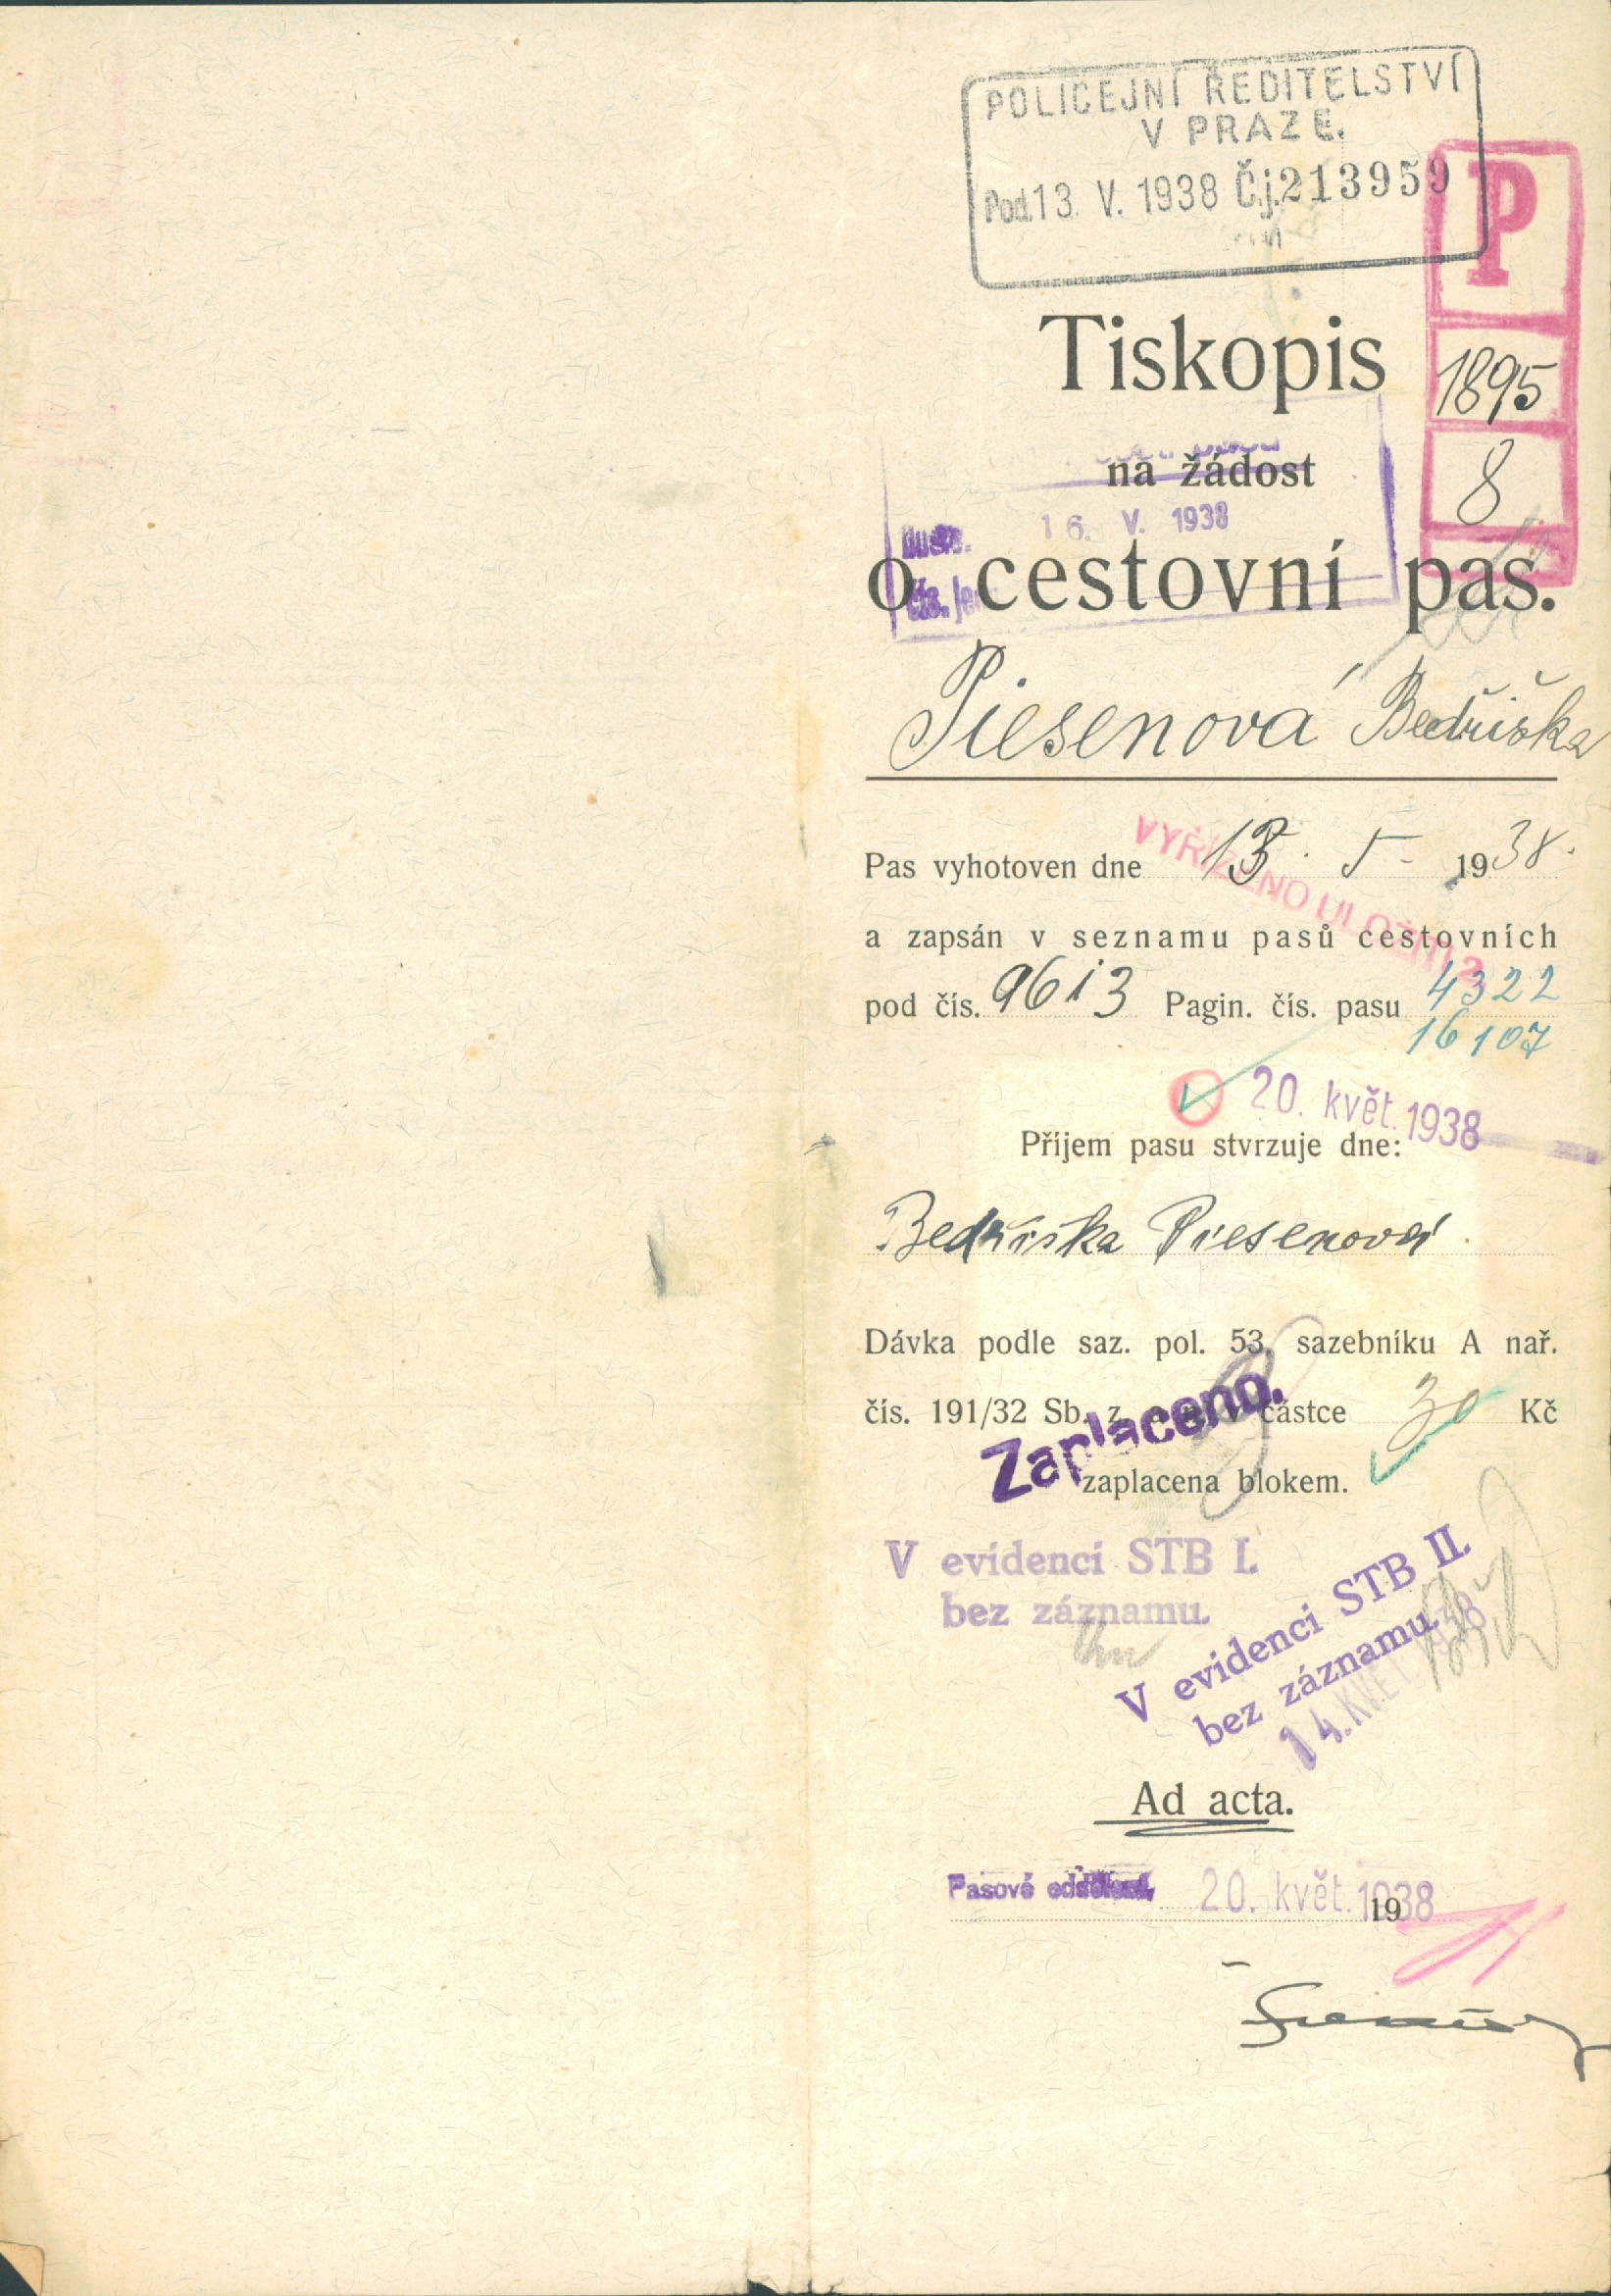 POLICEJNÍ ŘEDITELSTVÍ
V PRAZE.
Pod. 13. V. 1938 Č.j. 213959
P
1895
8
Tiskopis
na žádost
16. V. 1938
o cestovní pas.
Piesenová Bedřiška
Pas vyhotoven dne 13. 5. 1938.
VYŘÍZENO ULOŽIT
a zapsán v seznamu pasů cestovních
pod čís. 9613 Pagin. čís. pasu 4322
16107
20. květ. 1938
Příjem pasu stvrzuje dne:
Bedřiška Piesenová
Dávka podle saz. pol. 53, sazebníku A nař.
čís. 191/32 Sb. z. a n. v částce 30 Kč
Zaplaceno.
zaplacena blokem.
V evidenci STB I.
bez záznamu.
V evidenci STB II.
bez záznamu.
14. KVĚT. 1938
Ad acta.
Pasové oddělení, 20. květ. 1938
19